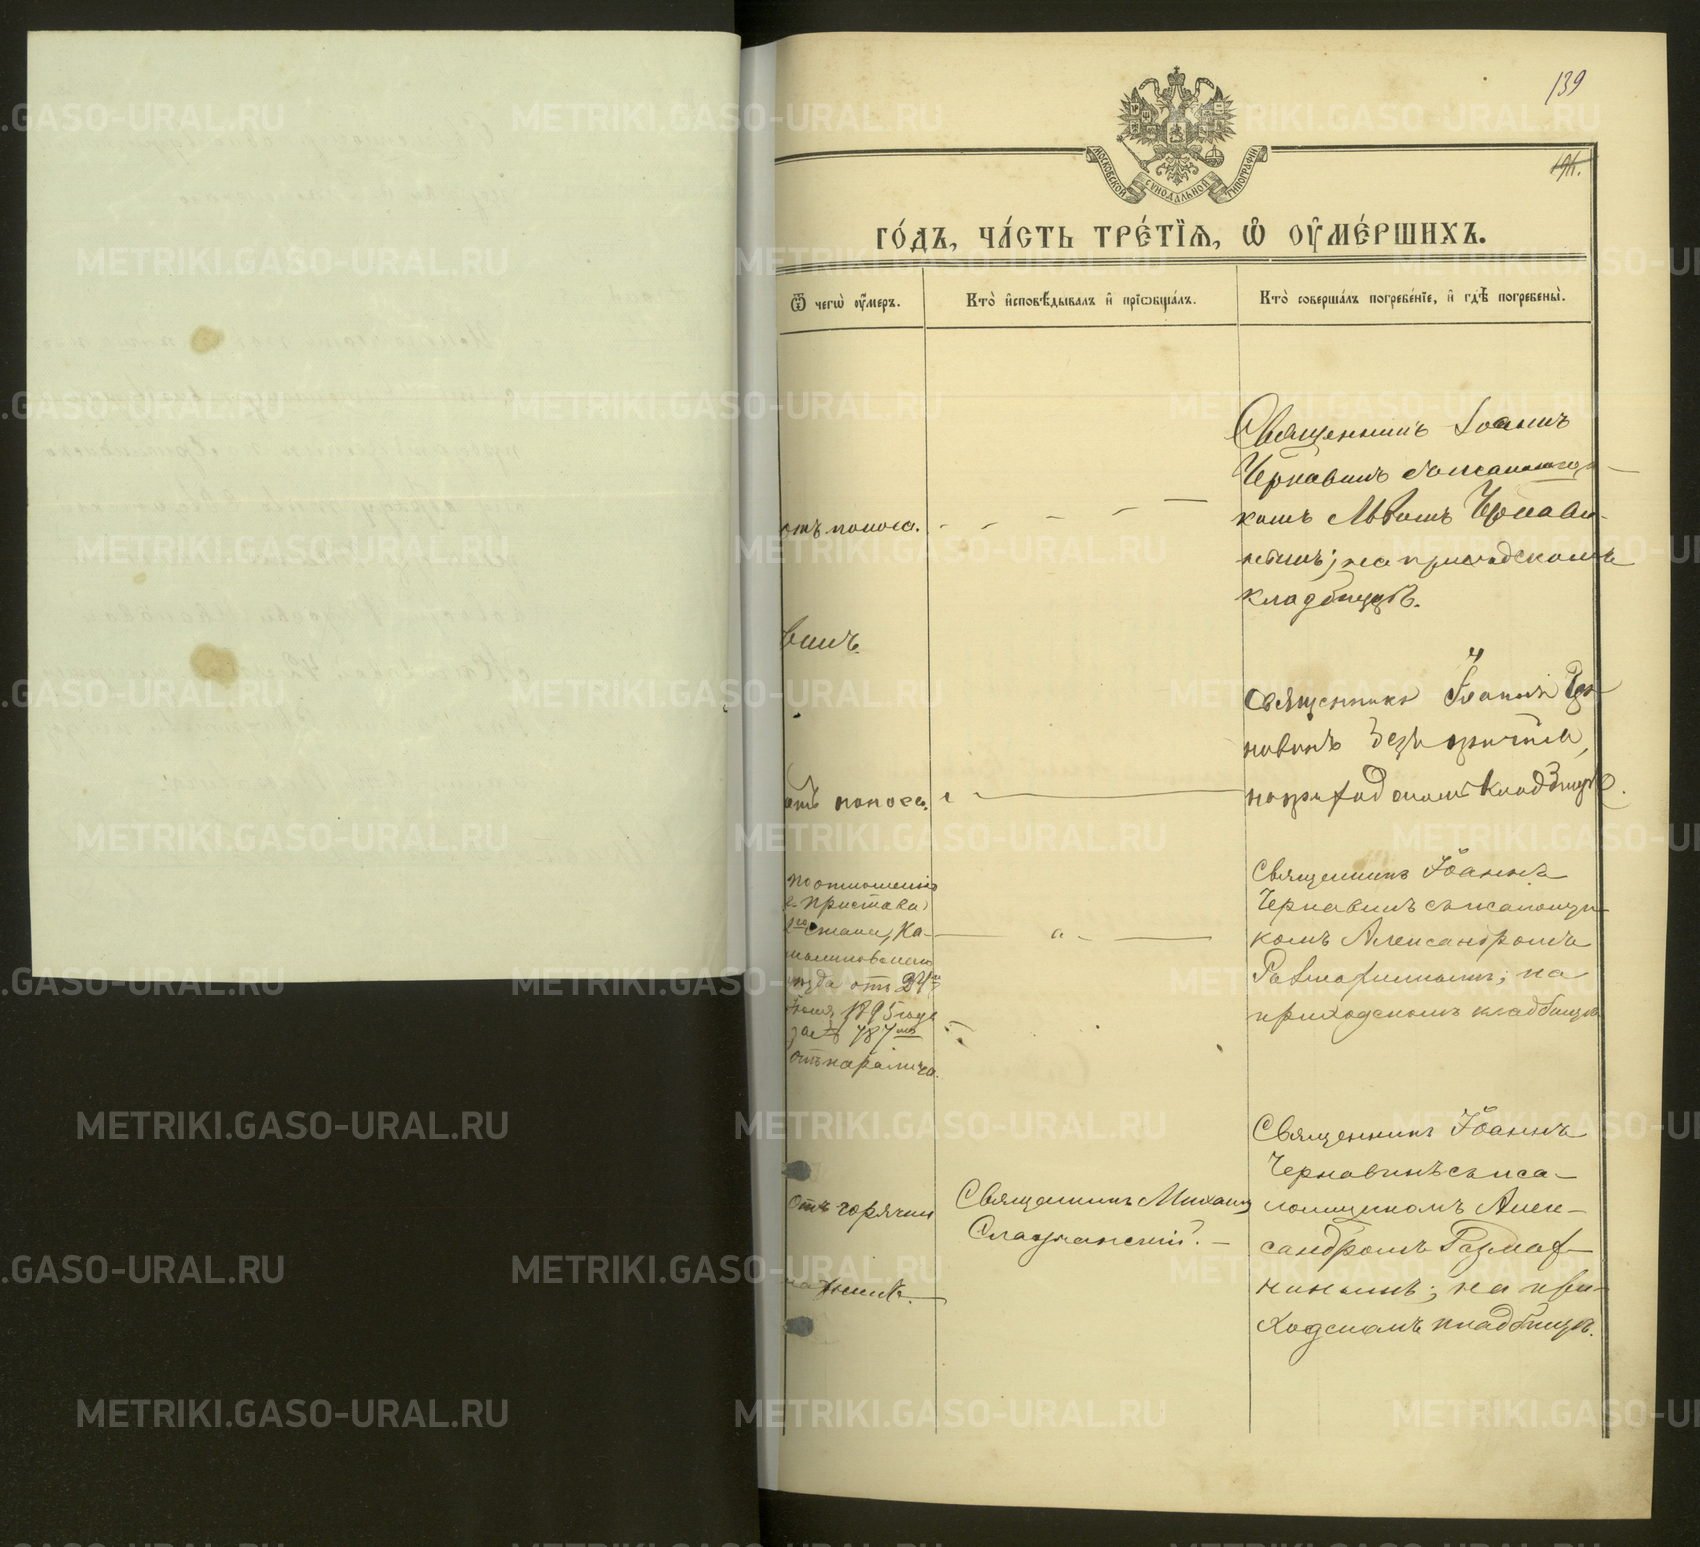 139
191.
МОСКОВСКОЙ СѴНОДАЛЬНОЙ ТИПОГРАФІИ
ГО́ДЪ, ЧА́СТЬ ТРЕ́ТІѦ, Ѡ҆ ОУ҆МЕ́РШИХЪ.
Ѿ чегѡ̀ оу҆́меръ.
Кто̀ и҆сповѣ́дывалъ и҆ прїѡбща́лъ.
Кто̀ соверша́лъ погребе́нїе, и҆ гдѣ̀ погребены̀.
Священникъ Іоаннъ
Чернавинъ съ псаломщи-
комъ Львомъ Чернави-
нымъ; на приходскомъ
кладбищѣ.
отъ поноса.
вимъ.
Священникъ Іоаннъ Чер-
навинъ безъ причта,
на приходскомъ кладбищѣ.
отъ поноса.
по отношенію
г. Пристава
2го стана, Ка-
мышловскаго
уѣзда отъ 24го
1895 года
за № 787мъ
отъ паралича.
Священникъ Іоаннъ
Чернавинъ съ псаломщи-
комъ Александромъ
на
приходскомъ кладбищѣ
отъ горячки
Священникъ Михаилъ
Священникъ Іоаннъ
Чернавинъ съ пса-
ломщикомъ Алек-
сандромъ
на при-
ходскомъ кладбищѣ.
METRIKI.GASO-URAL.RU